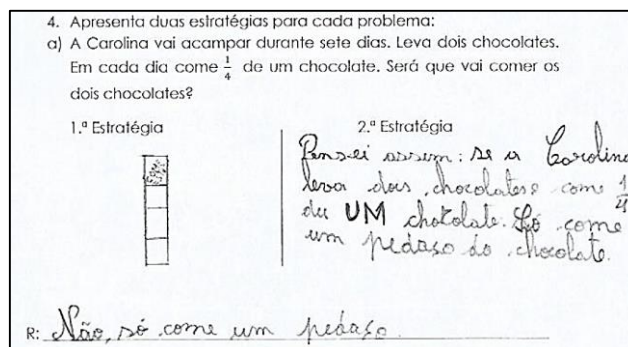 4. Apresenta duas estratégias para cada problema:
a) A Carolina vai acampar durante sete dias. Leva dois chocolates.
Em cada dia come 1/4 de um chocolate. Será que vai comer os
dois chocolates?
1.ª Estratégia
2.ª Estratégia
Pensei assim: se a Carolina
leva dois chocolates e come 1/4
du UM chocolate. Só come
um pedaso do chocolate.
R: Não, só come um pedaso.